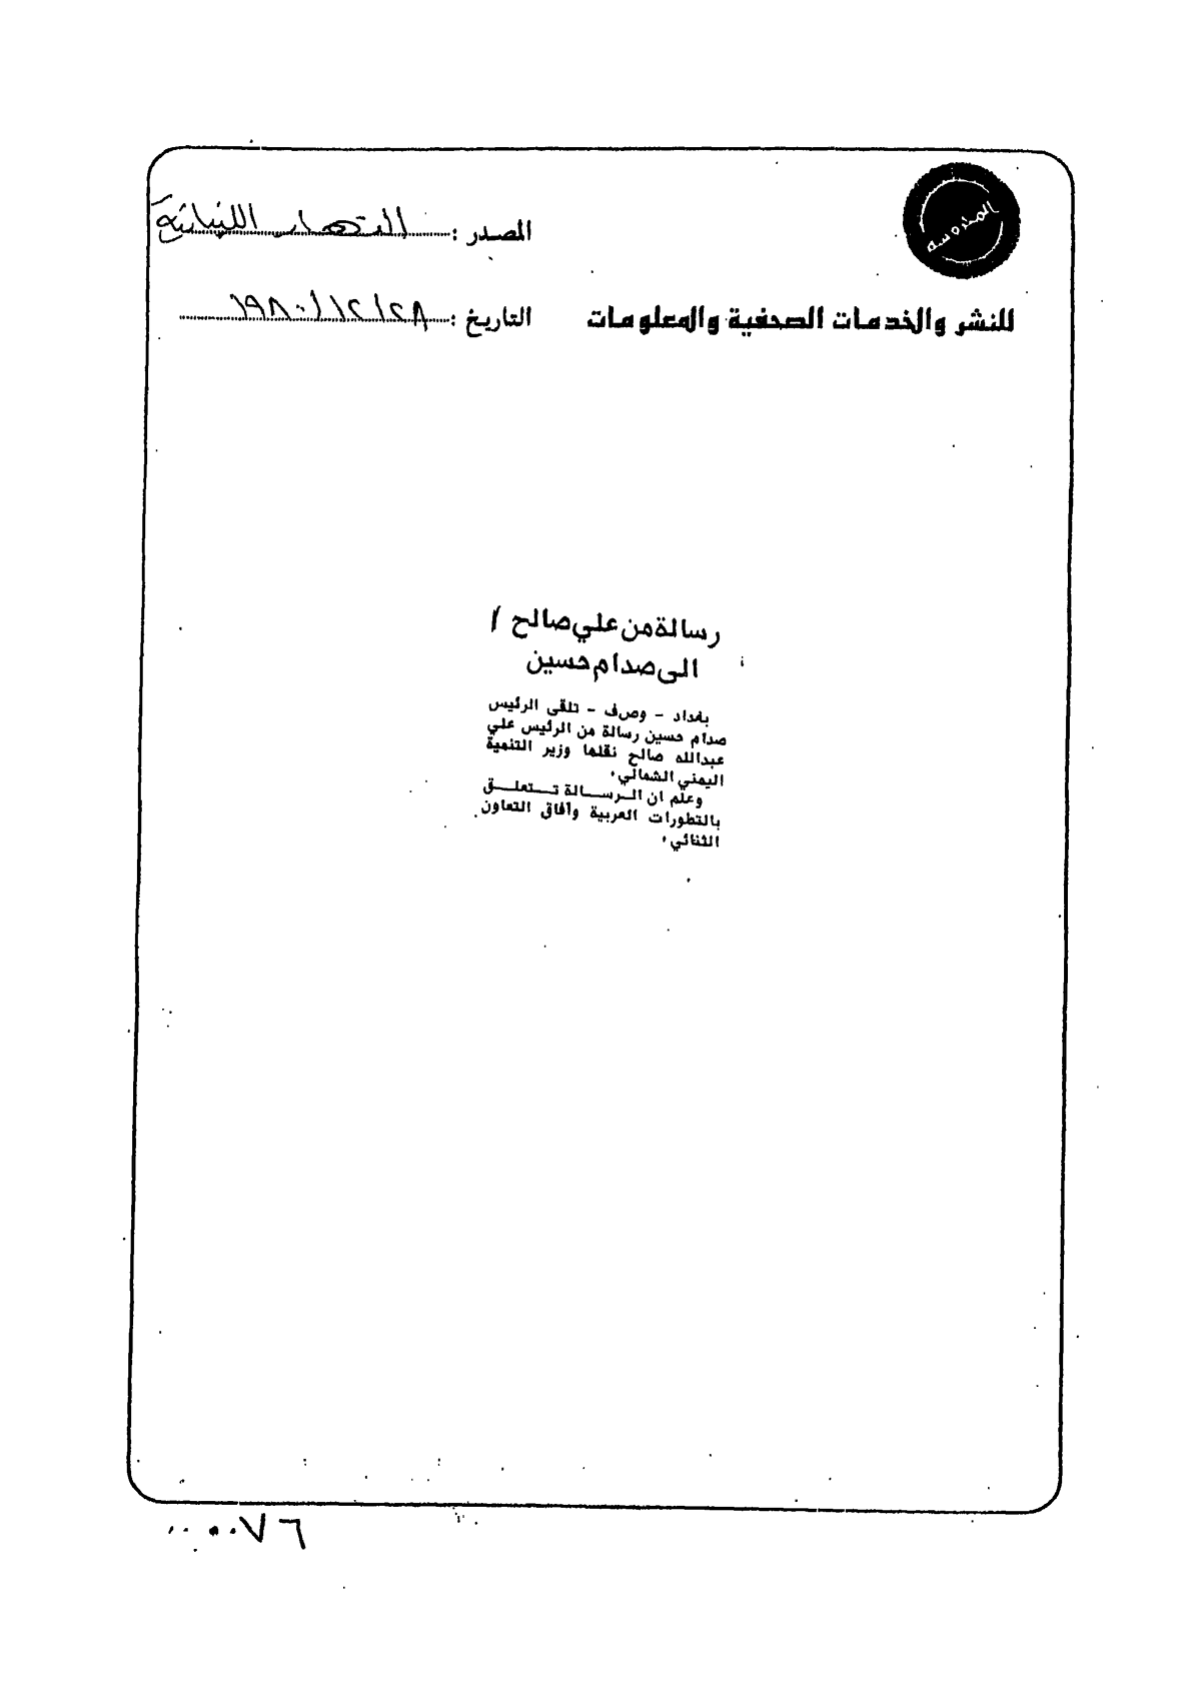 المحروسه
المصدر : النهار اللبنانية
للنشر والخدمات الصحفية والمعلومات
التاريخ : ٢٨/١٢/١٩٨٠
رسالة من علي صالح /
الى صدام حسين
بغداد - وصف - تلقى الرئيس
صدام حسين رسالة من الرئيس علي
عبدالله صالح نقلها وزير التنمية
اليمني الشمالي.
وعلم ان الرسالة تتعلق
بالتطورات العربية وآفاق التعاون
الثنائي.